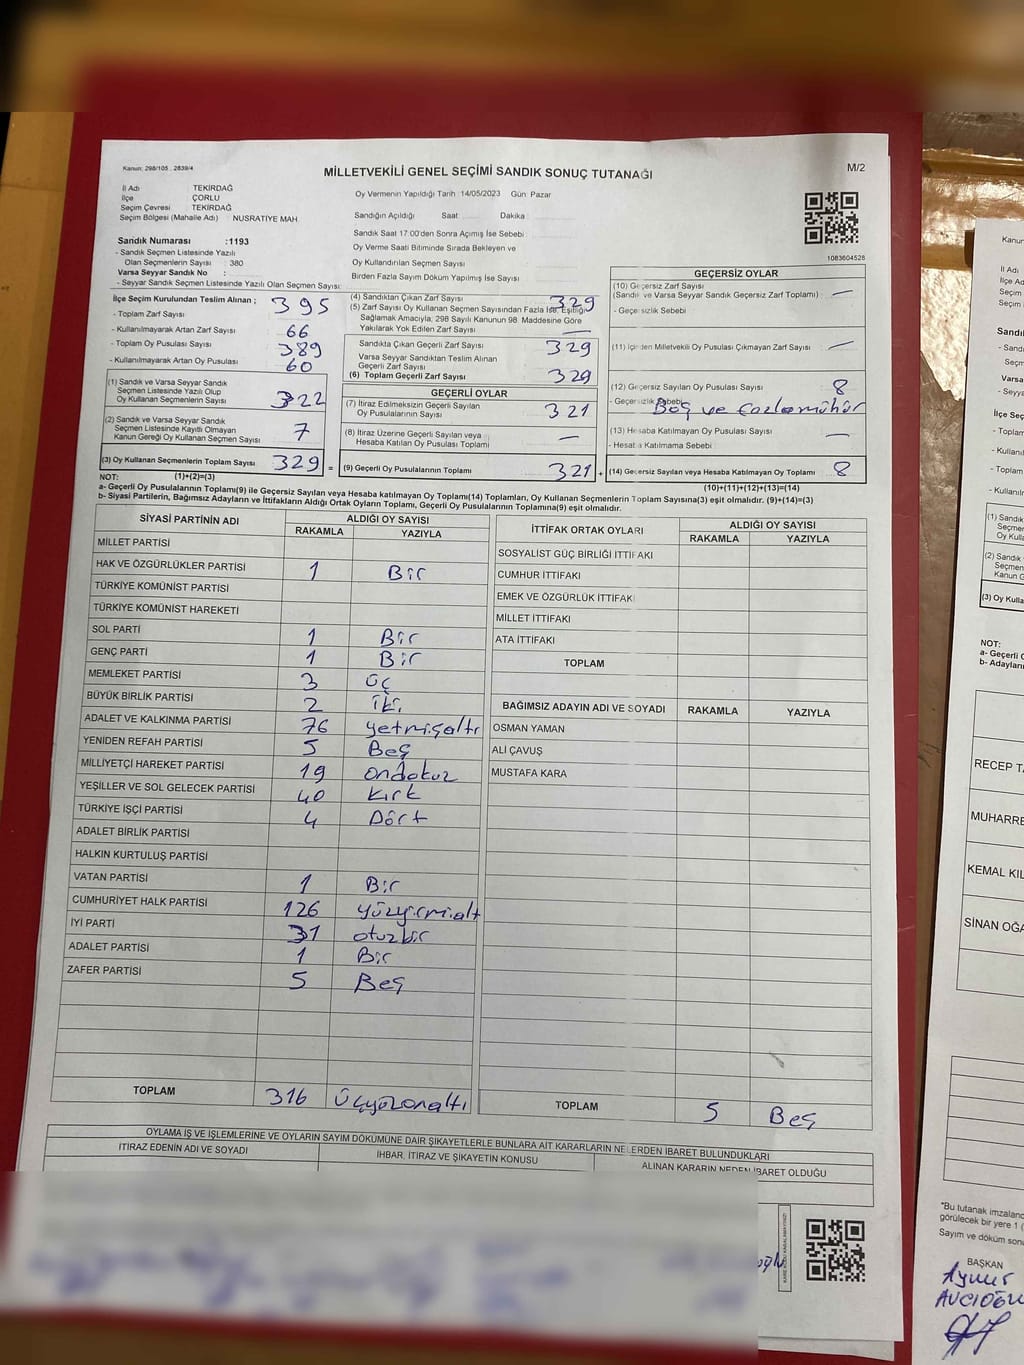 Kanun: 298/105 . 2839/4
MİLLETVEKİLİ GENEL SEÇİMİ SANDIK SONUÇ TUTANAĞI
M/2
İl Adı TEKİRDAĞ
İlçe ÇORLU
Seçim Çevresi TEKİRDAĞ
Seçim Bölgesi (Mahalle Adı) NUSRATİYE MAH
Oy Vermenin Yapıldığı Tarih :14/05/2023 Gün: Pazar
Sandığın Açıldığı Saat: Dakika:
Sandık Saat 17:00'den Sonra Açımış İse Sebebi
Oy Verme Saati Bitiminde Sırada Bekleyen ve
Oy Kullandırılan Seçmen Sayısı
Birden Fazla Sayım Döküm Yapılmış İse Sayısı
1083604528
Sandık Numarası :1193
- Sandık Seçmen Listesinde Yazılı
Olan Seçmenlerin Sayısı : 380
Varsa Seyyar Sandık No :
- Seyyar Sandık Seçmen Listesinde Yazılı Olan Seçmen Sayısı:
İlçe Seçim Kurulundan Teslim Alınan ;
- Toplam Zarf Sayısı 395
- Kullanılmayarak Artan Zarf Sayısı 66
- Toplam Oy Pusulası Sayısı 389
- Kullanılmayarak Artan Oy Pusulası 60
(1) Sandık ve Varsa Seyyar Sandık
Seçmen Listesinde Yazılı Olup
Oy Kullanan Seçmenlerin Sayısı 322
(2) Sandık ve Varsa Seyyar Sandık
Seçmen Listesinde Kayıtlı Olmayan
Kanun Gereği Oy Kullanan Seçmen Sayısı 7
(3) Oy Kullanan Seçmenlerin Toplam Sayısı 329 =
(1)+(2)=(3)
(4) Sandıktan Çıkan Zarf Sayısı 329
(5) Zarf Sayısı Oy Kullanan Seçmen Sayısından Fazla İse, Eşitliği
Sağlamak Amacıyla; 298 Sayılı Kanunun 98. Maddesine Göre
Yakılarak Yok Edilen Zarf Sayısı —
Sandıkta Çıkan Geçerli Zarf Sayısı 329
Varsa Seyyar Sandıktan Teslim Alınan
Geçerli Zarf Sayısı
(6) Toplam Geçerli Zarf Sayısı 329
GEÇERLİ OYLAR
(7) İtiraz Edilmeksizin Geçerli Sayılan
Oy Pusulalarının Sayısı 321
(8) İtiraz Üzerine Geçerli Sayılan veya
Hesaba Katılan Oy Pusulası Toplamı —
(9) Geçerli Oy Pusulalarının Toplamı 321 +
GEÇERSİZ OYLAR
(10) Geçersiz Zarf Sayısı
(Sandık ve Varsa Seyyar Sandık Geçersiz Zarf Toplamı) —
- Geçersizlik Sebebi
(11) İçinden Milletvekili Oy Pusulası Çıkmayan Zarf Sayısı —
(12) Geçersiz Sayılan Oy Pusulası Sayısı 8
- Geçersizlik Sebebi Boş ve fazla mühür
(13) Hesaba Katılmayan Oy Pusulası Sayısı —
- Hesaba Katılmama Sebebi
(14) Geçersiz Sayılan veya Hesaba Katılmayan Oy Toplamı 8
(10)+(11)+(12)+(13)=(14)
NOT:
a- Geçerli Oy Pusulaları Toplamı(9) ile Geçersiz Sayılan veya Hesaba katılmayan Oy Toplamı(14) Toplamları, Oy Kullanan Seçmenlerin Toplam Sayısına(3) eşit olmalıdır. (9)+(14)=(3)
b- Siyasi Partilerin, Bağımsız Adayların ve İttifakların Aldığı Ortak Oyların Toplamı, Geçerli Oy Pusulalarının Toplamına(9) eşit olmalıdır.
SİYASİ PARTİNİN ADI ALDIĞI OY SAYISI
RAKAMLA YAZIYLA
MİLLET PARTİSİ
HAK VE ÖZGÜRLÜKLER PARTİSİ 1 Bir
TÜRKİYE KOMÜNİST PARTİSİ
TÜRKİYE KOMÜNİST HAREKETİ
SOL PARTİ 1 Bir
GENÇ PARTİ 1 Bir
MEMLEKET PARTİSİ 3 üç
BÜYÜK BİRLİK PARTİSİ 2 iki
ADALET VE KALKINMA PARTİSİ 76 yetmişaltı
YENİDEN REFAH PARTİSİ 5 Beş
MİLLİYETÇİ HAREKET PARTİSİ 19 ondokuz
YEŞİLLER VE SOL GELECEK PARTİSİ 40 kırk
TÜRKİYE İŞÇİ PARTİSİ 4 Dört
ADALET BİRLİK PARTİSİ
HALKIN KURTULUŞ PARTİSİ
VATAN PARTİSİ 1 Bir
CUMHURİYET HALK PARTİSİ 126 yüzyirmialt
İYİ PARTİ 31 otuzbir
ADALET PARTİSİ 1 Bir
ZAFER PARTİSİ 5 Beş
TOPLAM 316 üçyüzonaltı
İTTİFAK ORTAK OYLARI ALDIĞI OY SAYISI
RAKAMLA YAZIYLA
SOSYALİST GÜÇ BİRLİĞİ İTTİFAKI
CUMHUR İTTİFAKI
EMEK VE ÖZGÜRLÜK İTTİFAKI
MİLLET İTTİFAKI
ATA İTTİFAKI
TOPLAM
BAĞIMSIZ ADAYIN ADI VE SOYADI RAKAMLA YAZIYLA
OSMAN YAMAN
ALİ ÇAVUŞ
MUSTAFA KARA
TOPLAM 5 Beş
OYLAMA İŞ VE İŞLEMLERİNE VE OYLARIN SAYIM DÖKÜMÜNE DAİR ŞİKAYETLERLE BUNLARA AİT KARARLARIN NELERDEN İBARET BULUNDUKLARI
İTİRAZ EDENİN ADI VE SOYADI
İHBAR, İTİRAZ VE ŞİKAYETİN KONUSU
ALINAN KARARIN NEDEN İBARET OLDUĞU
Kanun
İl Adı
İlçe
Seçim
Seçim
Sandı
- Sand
Seçm
Varsa
- Seyya
İlçe Seç
- Toplam
- Kullanı
- Toplam
- Kullanı
(1) Sandık
Seçmen
Oy Kulla
(2) Sandık
Seçmen
Kanun G
(3) Oy Kulla
NOT:
a- Geçerli O
b- Adayların
RECEP TA
MUHARRE
KEMAL KIL
SİNAN OĞA
*Bu tutanak imzalanc
görülecek bir yere 1 (
Sayım ve döküm sonu
BAŞKAN
Aynur
AVCIOĞLU